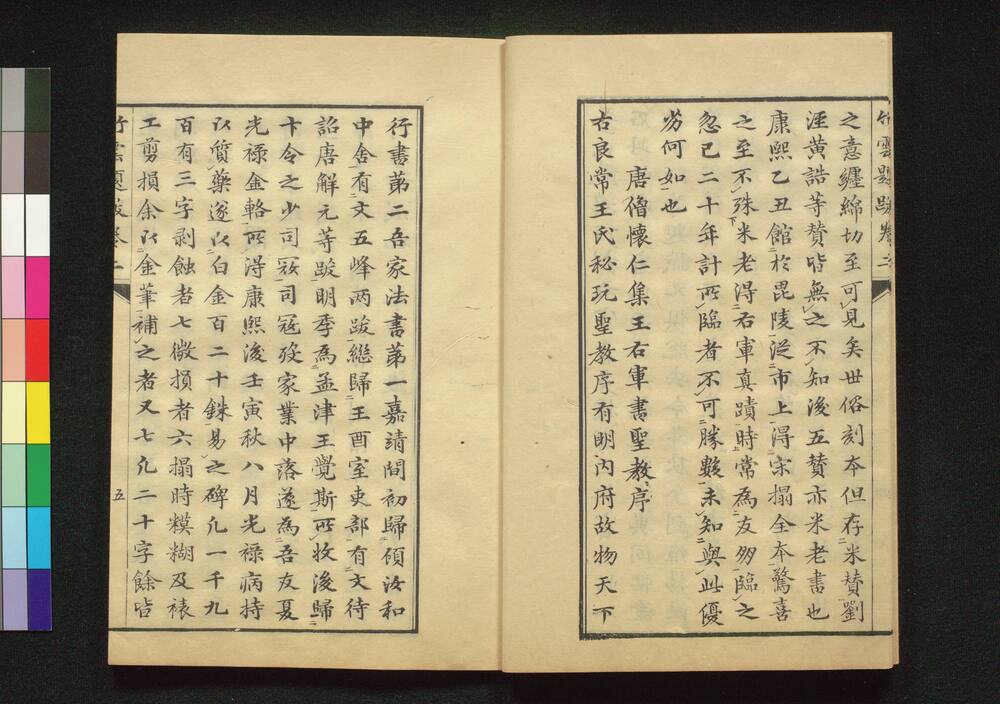 竹雲題跋卷二
之意纏綿切至可見矣世俗刻本但存米賛劉
涇黄誥等賛皆無之不知後五賛亦米老書也
康熙乙丑館於毘陵從市上得宋搨全本驚喜
之至不殊米老得右軍真蹟時常為友朋臨之
忽已二十年計所臨者不可勝數未知與此優
劣何如也
唐僧懷仁集王右軍書聖教序
右良常王氏秘玩聖教序有明内府故物天下
行書苐二吾家法書苐一嘉靖間初歸傾汝和
中舍有文五峰两跋繼歸王酉室吏部有文待
詔唐解元等跋明季為孟津王覺斯所收後歸
卞令之少司寇司寇歿家業中落遂為吾友夏
光禄金輅所得康熙後壬寅秋八月光禄病持
以質藥遂以白金百二十銖易之碑凢一千九
百有三字剥蝕者七微損者六搨時糢糊及裱
工剪損余以金筆補之者又七凢二十字餘皆
竹雲題跋卷二
五